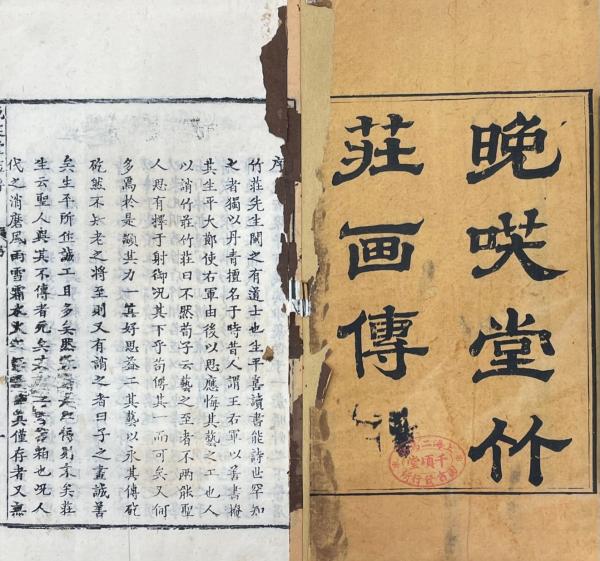 晚咲堂竹
莊画傳
千頃堂
序
竹莊先生閩之有道士也生平喜讀書能詩世罕知
之者獨以丹青擅名于時昔人謂王右軍以善書掩
其生平大節使右軍由後以思應悔其藝之工也人
以誚竹莊竹莊曰不然荀子云藝之至者不兩能聖
人思有擇于射御况其下乎苟傳其一而可矣又何
多焉於是顓其力一其好思益工其藝以永其傳矻
矻然不知老之將至則又有誚之者曰子之畫誠善
矣生平所作誠工且多矣然得則幸矣莊
生云聖人與其不傳者死矣也况人
代之消磨風雨雪霜水火其僅存者又無
一